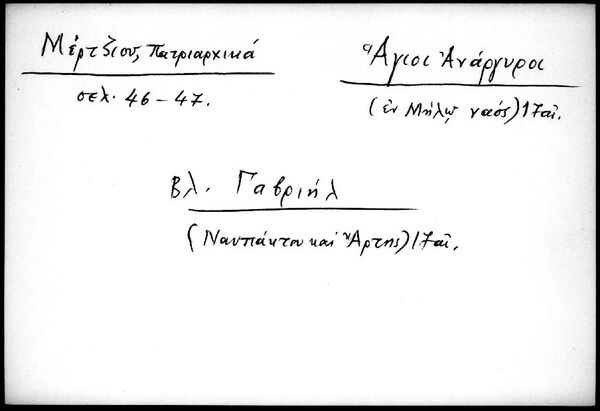 Μέρτζιου, Πατριαρχικά
σελ. 46-47.
Ἅγιοι Ἀνάργυροι
(ἐν Μήλῳ ναός) 17 αἰ.
Βλ. Γαβριήλ
(Ναυπάκτου καὶ Ἄρτης) 17 αἰ.